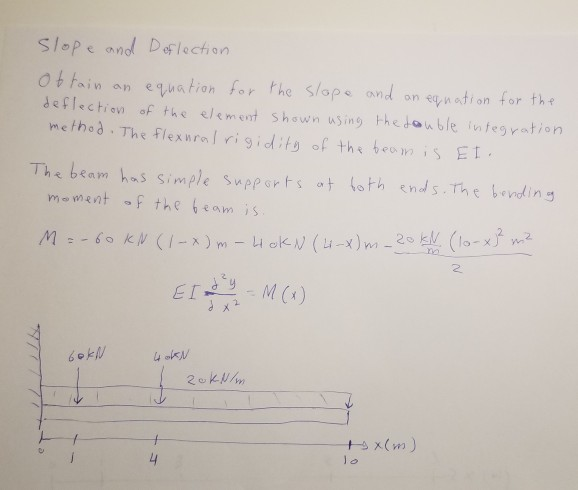 Slope and Deflection
Obtain an equation for the slope and an equation for the
deflection of the element shown using the double integration
method. The flexural rigidity of the beam is EI.
The beam has simple supports at both ends. The bending
moment of the beam is.
M = -60 kN (1-x) m - 40kN (4-x) m - 20 kN/m (10-x)² m² / 2
EI d²y/dx² = M(x)
60kN 40kN
20kN/m
x(m)
0 1 4 10